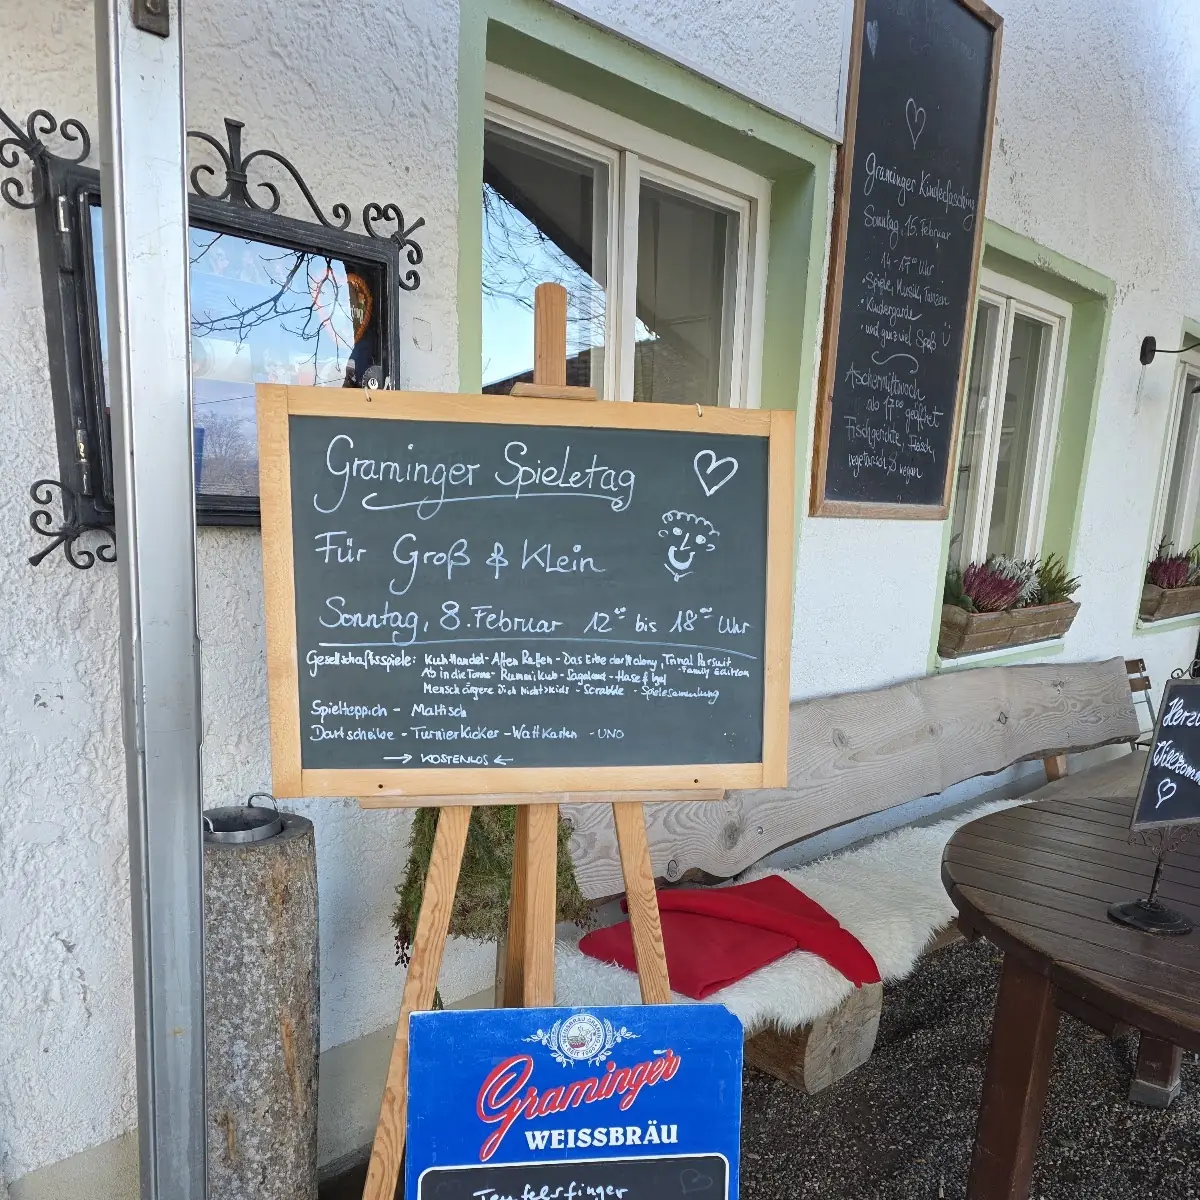 Graminger Spieletag
Für Groß & Klein
Sonntag, 8. Februar 12°° bis 18°° Uhr
Gesellschaftsspiele: Kuhhandel - Affen Raffen - Das Erbe der Maloney, Trivial Pursuit
Family Edition
Ab in die Tonne - Rummikub - Sagaland - Hase & Igel
Mensch ärgere Dich Nicht > Kids - Scrabble - Spielesammlung
Spielteppich - Maltisch
Dartscheibe - Turnierkicker - Wattkarten - UNO
→ KOSTENLOS ←
Graminger Kinderfasching
Sonntag, 15. Februar
14 - 17°° Uhr
• Spiele, Musik, Tanzen
• Kindergarde
• und ganz viel Spaß
Aschermittwoch
ab 17°° geöffnet
Fischgerichte, Fleisch,
vegetarisch & vegan
Willkomm
Graminger
WEISSBRÄU
Teufelsfinger